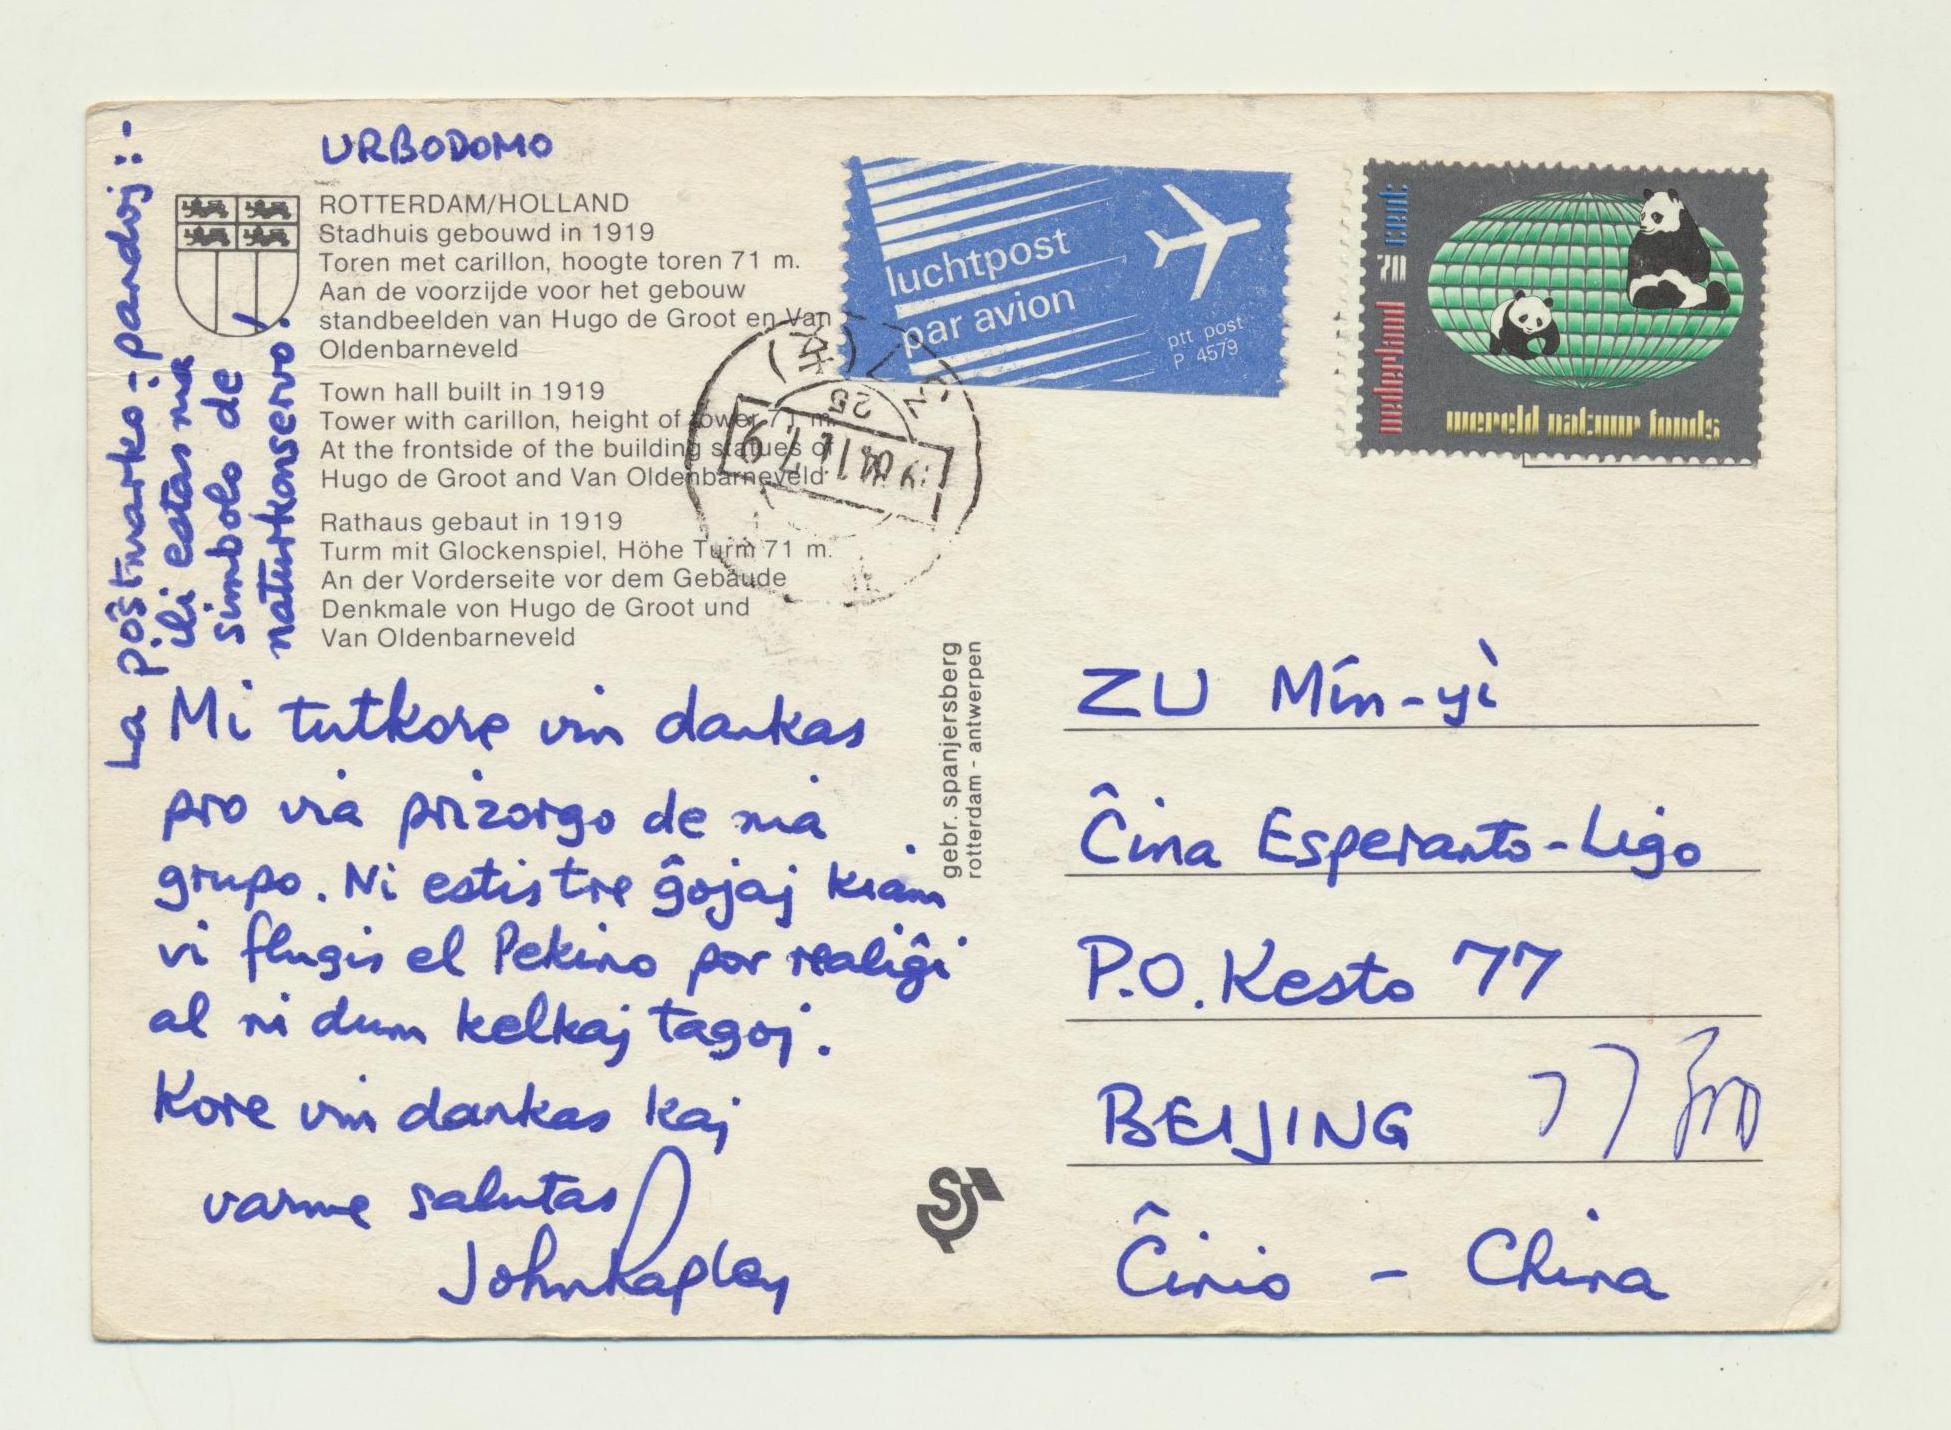 La poŝtmarko - pandoj :-
ili estas nia
simbolo de
naturkonservo!
URBODOMO
ROTTERDAM/HOLLAND
Stadhuis gebouwd in 1919
Toren met carillon, hoogte toren 71 m.
Aan de voorzijde voor het gebouw
standbeelden van Hugo de Groot en Van
Oldenbarneveld
Town hall built in 1919
Tower with carillon, height of tower 71 m.
At the frontside of the building statues of
Hugo de Groot and Van Oldenbarneveld
Rathaus gebaut in 1919
Turm mit Glockenspiel, Höhe Turm 71 m.
An der Vorderseite vor dem Gebäude
Denkmale von Hugo de Groot und
Van Oldenbarneveld
Mi tutkore vin dankas
pro via prizorgo de nia
grupo. Ni estis tre ĝojaj kiam
vi flugis el Pekino por realiĝi
al ni dum kelkaj tagoj.
Kore vin dankas kaj
varme salutas
John Rapley
gebr. spanjersberg
rotterdam - antwerpen
luchtpost
par avion
ptt post
P 4579
25
nederland 70 cent
wereld natuur fonds
ZU Mín-yì
Ĉina Esperanto-Ligo
P.O. Kesto 77
BEIJING
Ĉinio - China